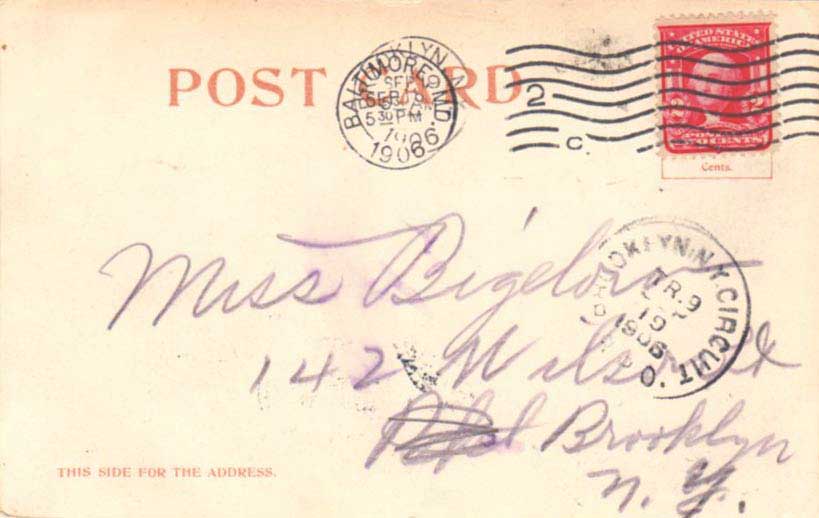 POST CARD
BALTIMORE, MD.
SEP 8
5 30 PM
1906
BROOKLYN, N.Y.
SEP 9
1906
2
C.
UNITED STATES
OF AMERICA
2 2
POSTAGE
TWO CENTS
Cents.
BROOKLYN, N.Y. CIRCUIT
TR. 9
10
1906
Miss Bigelow
142 Wilson St
Brooklyn
N. Y.
THIS SIDE FOR THE ADDRESS.